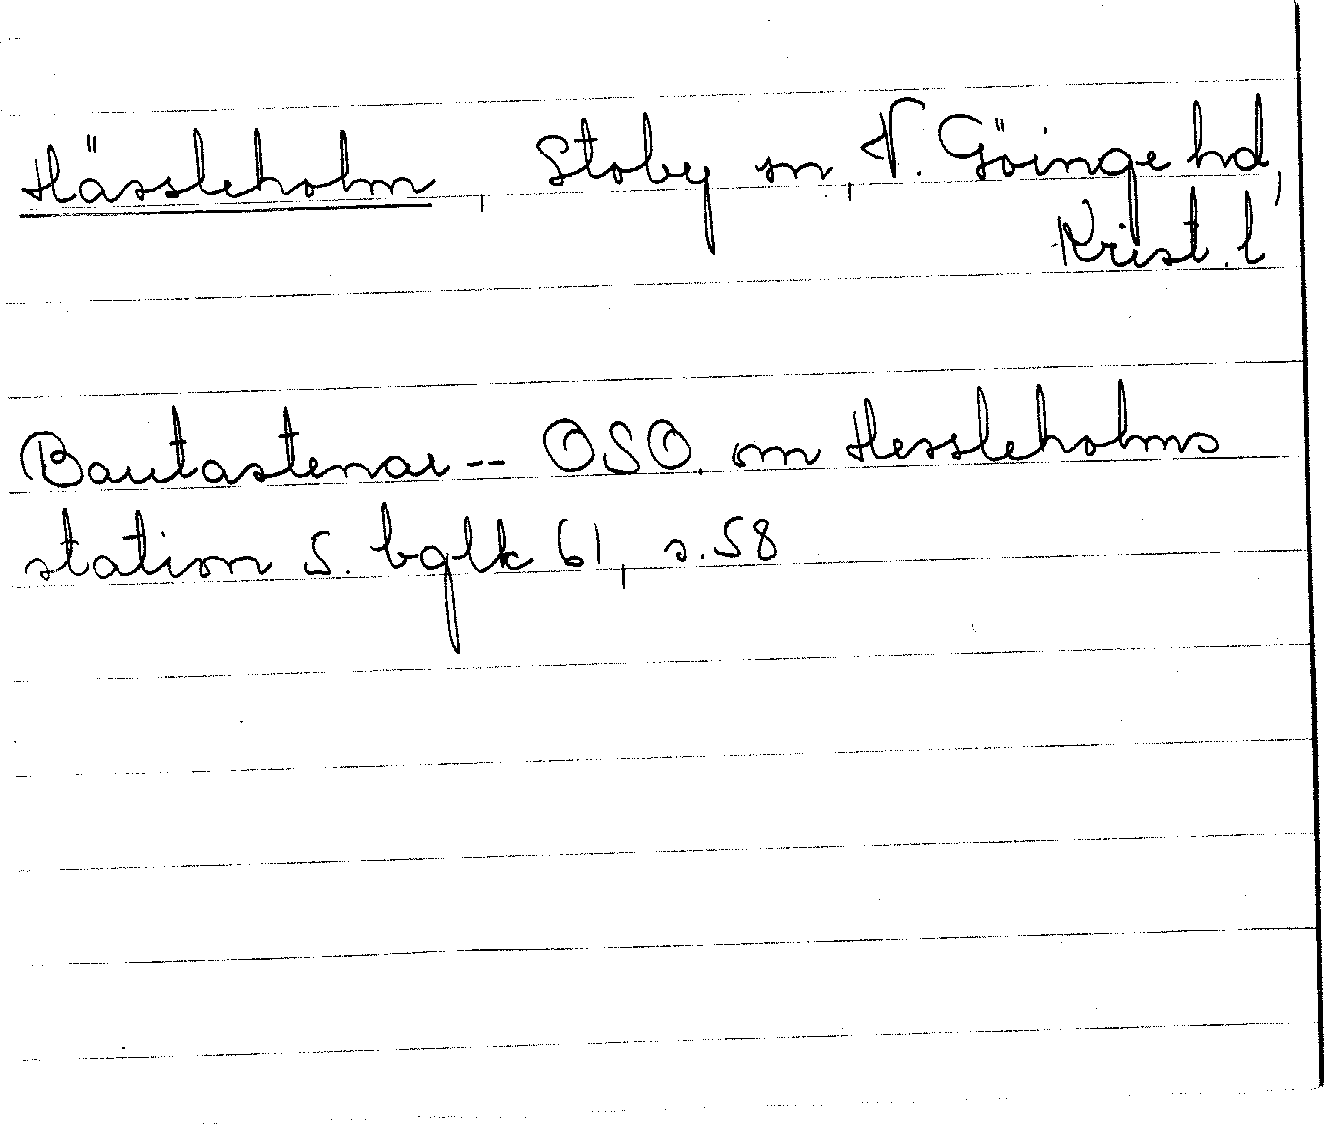 Hässleholm, Stoby sn, V. Göinge hd,
Krist. l
Bautastenar -- OSO. om Hessleholms
station S. bglk 61, s. 58